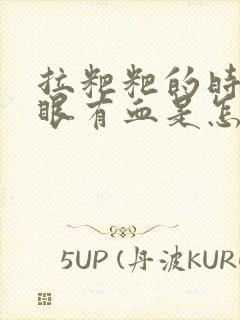 拉粑粑的时
眼有血是怎
5UP (丹波KUR